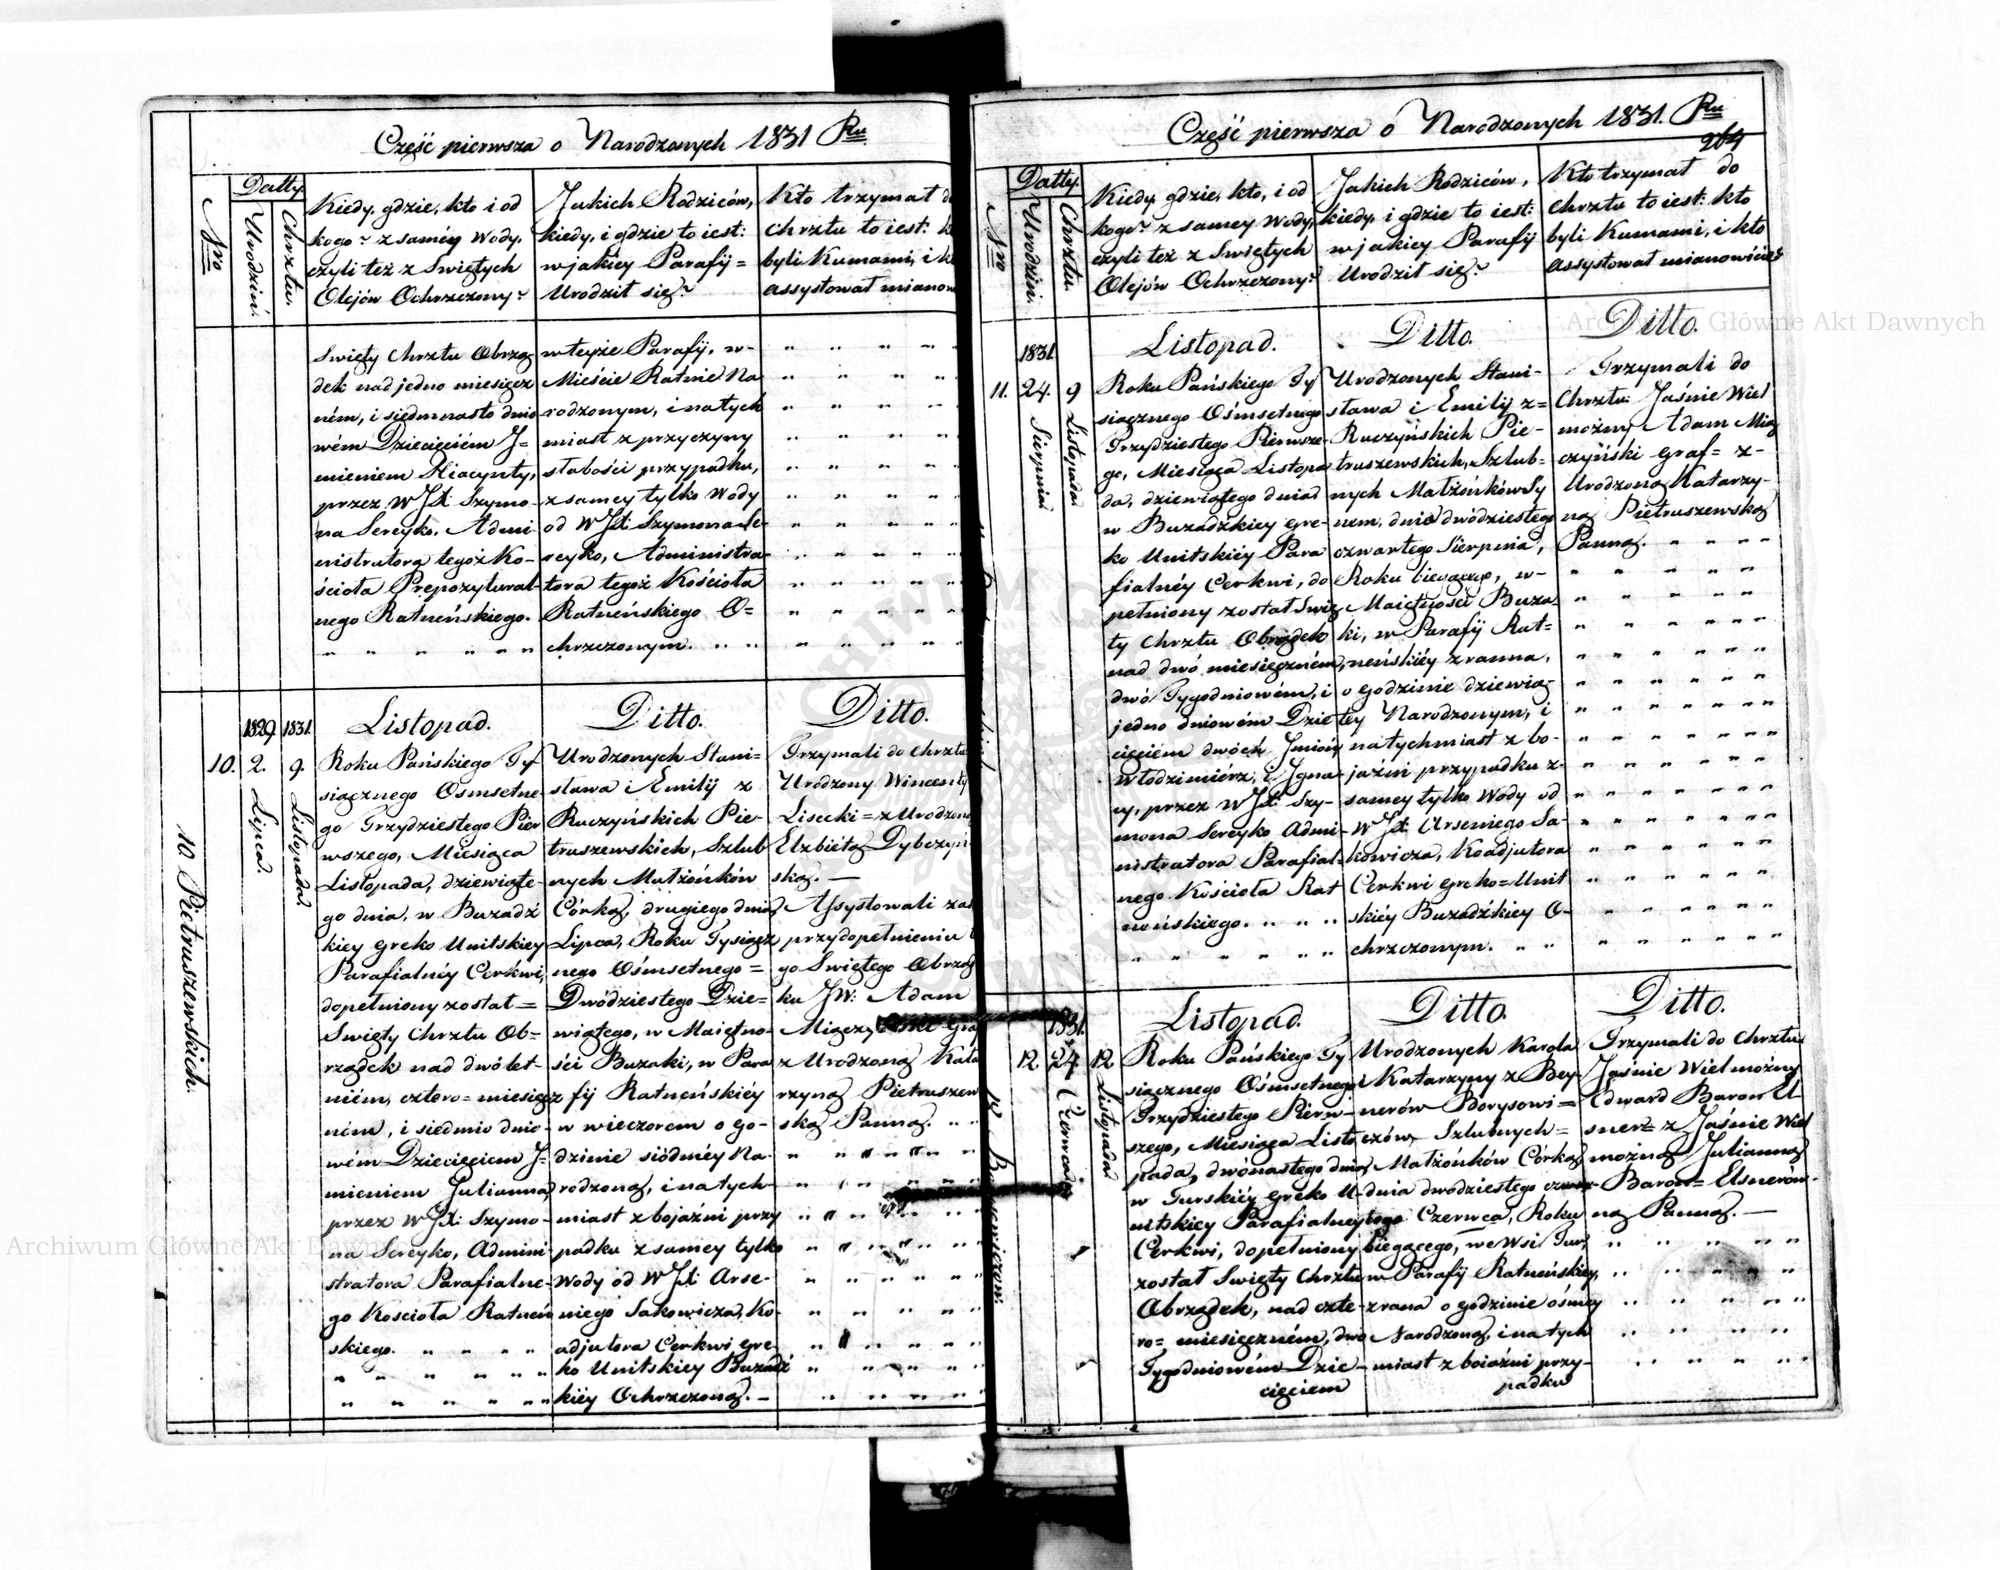 Część pierwsza o Narodzonych 1831 Ru
Nro
Datty.
Urodzin.
Chrztu.
Kiedy, gdzie, kto i od
kogo? z samey Wody,
czyli też z Swiętych
Olejów Ochrzczony?
Jakich Rodziców,
kiedy, i gdzie to iest:
w jakiey Parafij=
Urodził się?
Kto trzymał d
chrztu to iest: k
byli Kumami, i k
assystował mianow
Swięty Chrztu Obrzą-
dek nad jedno miesięcz
ném, i siedmnasto dnio
wém Dziecięciem J=
mieniem Hiacynty,
przez WJX: Szymo-
na Sereyko, Admi-
nistratora tegoż Ko-
ścioła Prepozytural-
nego Ratneńskiego.
w teyże Parafij, w-
Mieście Ratnie Na
rodzonym, i natych
miast z przyczyny
słabości przypadku,
z samey tylko Wody
od WJX: Szymona Se-
reyko, Administra-
tora tegoż Kościoła
Ratneńskiego O=
chrzczonym.
10. Pietruszewskich.
1829.
1831.
10.
2.
Lipca.
9.
Listopada.
Listopad.
Roku Pańskiego Ty
siącznego Osmsetne-
go Trzydziestego Pier
wszego, Miesiąca
Listopada, dziewiąte-
go dnia, w Buzadź
kiey Greko Unitskiey
Parafialnéy Cerkwi,
dopełniony został=
Swięty Chrztu Ob-
rządek nad dwólet-
niém, cztero= miesięcz
ném, i siedmio dnio-
wém Dziecięciem J-
mieniem Julianna
przez WJX: Szymo-
na Sereyko, Admini
stratora Parafialne-
go Kościoła Ratneń
skiego.
Ditto.
Urodzonych Stani=
sława i Emilij z
Ruczyńskich Pie-
truszewskich, Szlub
nych Małżonków
Córką, drugiego dnia
Lipca, Roku Tysiącz
nego Ośmsetnego =
Dwódziestego Dzie=
wiątego, w Maiętno-
ści Buzaki, w Para
fij Ratneńskiéy
w wieczorem o go-
dzinie siódméy Na-
rodzoną, i natych-
miast z bojaźni przy
padku z samey tylko
Wody od WJX: Arse-
niego Sakowicza, Ko-
adjutora Cerkwi Gre-
ko Unitskiey Buzadź
kiéy Ochrzczoną.
Ditto.
Trzymali do Chrztu
Urodzony Wincenty
Lisecki= z Urodzoną
Elzbiétą Dybczyń-
ską.
Assystowali zaś
przy dopełnieniu t
go Swiętego Obrząd
ku JW: Adam
Miączyński Gra
z Urodzoną Kata
rzyną Pietruszew
ską Panną.
Część pierwsza o Narodzonych 1831. Ru
264
Nro
Datty.
Urodzin.
Chrztu.
Kiedy, gdzie, kto, i od
kogo? z samey Wody,
czyli też z Swiętych
Olejów Ochrzczony?
Jakich Rodziców,
kiedy, i gdzie to iest:
w jakiey Parafij
Urodził się?
Kto trzymał do
chrztu to iest: kto
byli Kumami, i kto
assystował mianowicie?
1831.
11.
24.
Sierpnia.
9
Listopada.
Listopad.
Roku Pańskiego Ty
siącznego Ośmsetnego
Trzydziestego Pierwsze-
go, Miesiąca Listopa
da, dziewiątego dnia
w Buzadźkiey Gre-
ko Unitskiéy Para
fialnéy Cerkwi, do
pełniony został Swię
ty Chrztu Obrządek
nad dwó miesięczném,
dwó Tygodniowém, i
jedno dniowém Dzie
cięciem dwóch Jmiony
Włodzimiérz, i Igna-
cy, przez WJX: Szy-
mona Sereyko Admi-
nistratora Parafial-
nego Kościoła Rat
neńskiego.
Ditto.
Urodzonych Stani-
sława i Emilij z=
Ruczyńskich Pie-
truszewskich, Szlub-
nych Małżonków Sy
nem, dnia dwódziestego
czwartego Sierpnia,
Roku bieżącego, w-
Maiętności Buza-
ki, w Parafij Rat=
neńskiéy z ranna,
o godzinie dziewią-
tey Narodzonym, i
natychmiast z bo-
jaźni przypadku z-
samey tylko Wody od
WJX: Arseniego Sa-
kowicza, Koadjutora
Cerkwi Greko=Unit
skiéy Buzadźkiey O-
chrzczonym.
Ditto.
Trzymali do
Chrztu: Jaśnie Wiel
możny Adam Mią
czyński Graf= z-
Urodzoną Katarzy-
ną Pietruszewską
Panną.
12 Borysowiczów.
1831.
12
24
Czerwca
12
Listopada
Listopad.
Roku Pańskiego Ty
siącznego Ośmsetnego
Trzydziestego Pierw-
szego, Miesiąca Listo
pada, dwónastego dnia
w Turskiéy Greko U-
nitskiey Parafialney
Cerkwi, dopełniony
został Swięty Chrztu
Obrządek, nad czte-
ro= miesięczném, dwó
Tygodniowém Dzie-
cięciem
Ditto.
Urodzonych Karola
i Katarzyny z Bey-
nerów Borysowi=
czów Szlubnych=
Małżonków Córką
dnia dwódziestego czwar-
tego Czerwca, Roku
biegącego, we Wsi Tur,
w Parafij Ratneńskiey,
z rana o godzinie ósmey
Narodzoną, i natych
miast z boiaźni przy-
padku
Ditto.
Trzymali do Chrztu
Jaśnie Wielmożny
Edward Baron El
sner= z Jaśnie Wiel
możną Julianną
Baron= Elsnerów-
ną Panną.
Archiwum Główne Akt Dawnych
Archiwum Główne Akt Dawnych